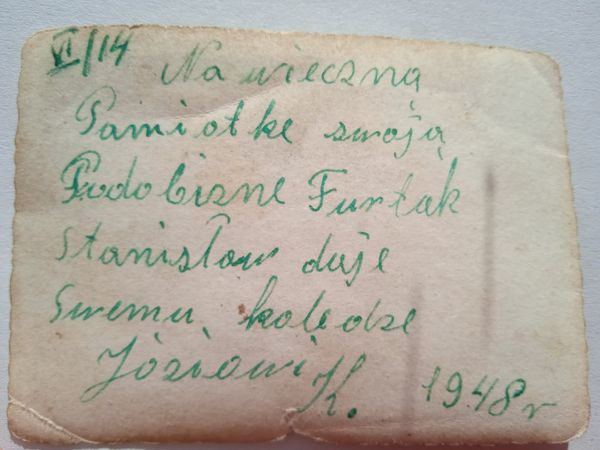 VI/14
Na wieczną
Pamiotke swoją
Podobizne Furtak
Stanisław daje
Swemu koledze
Józiowi K. 1948 r